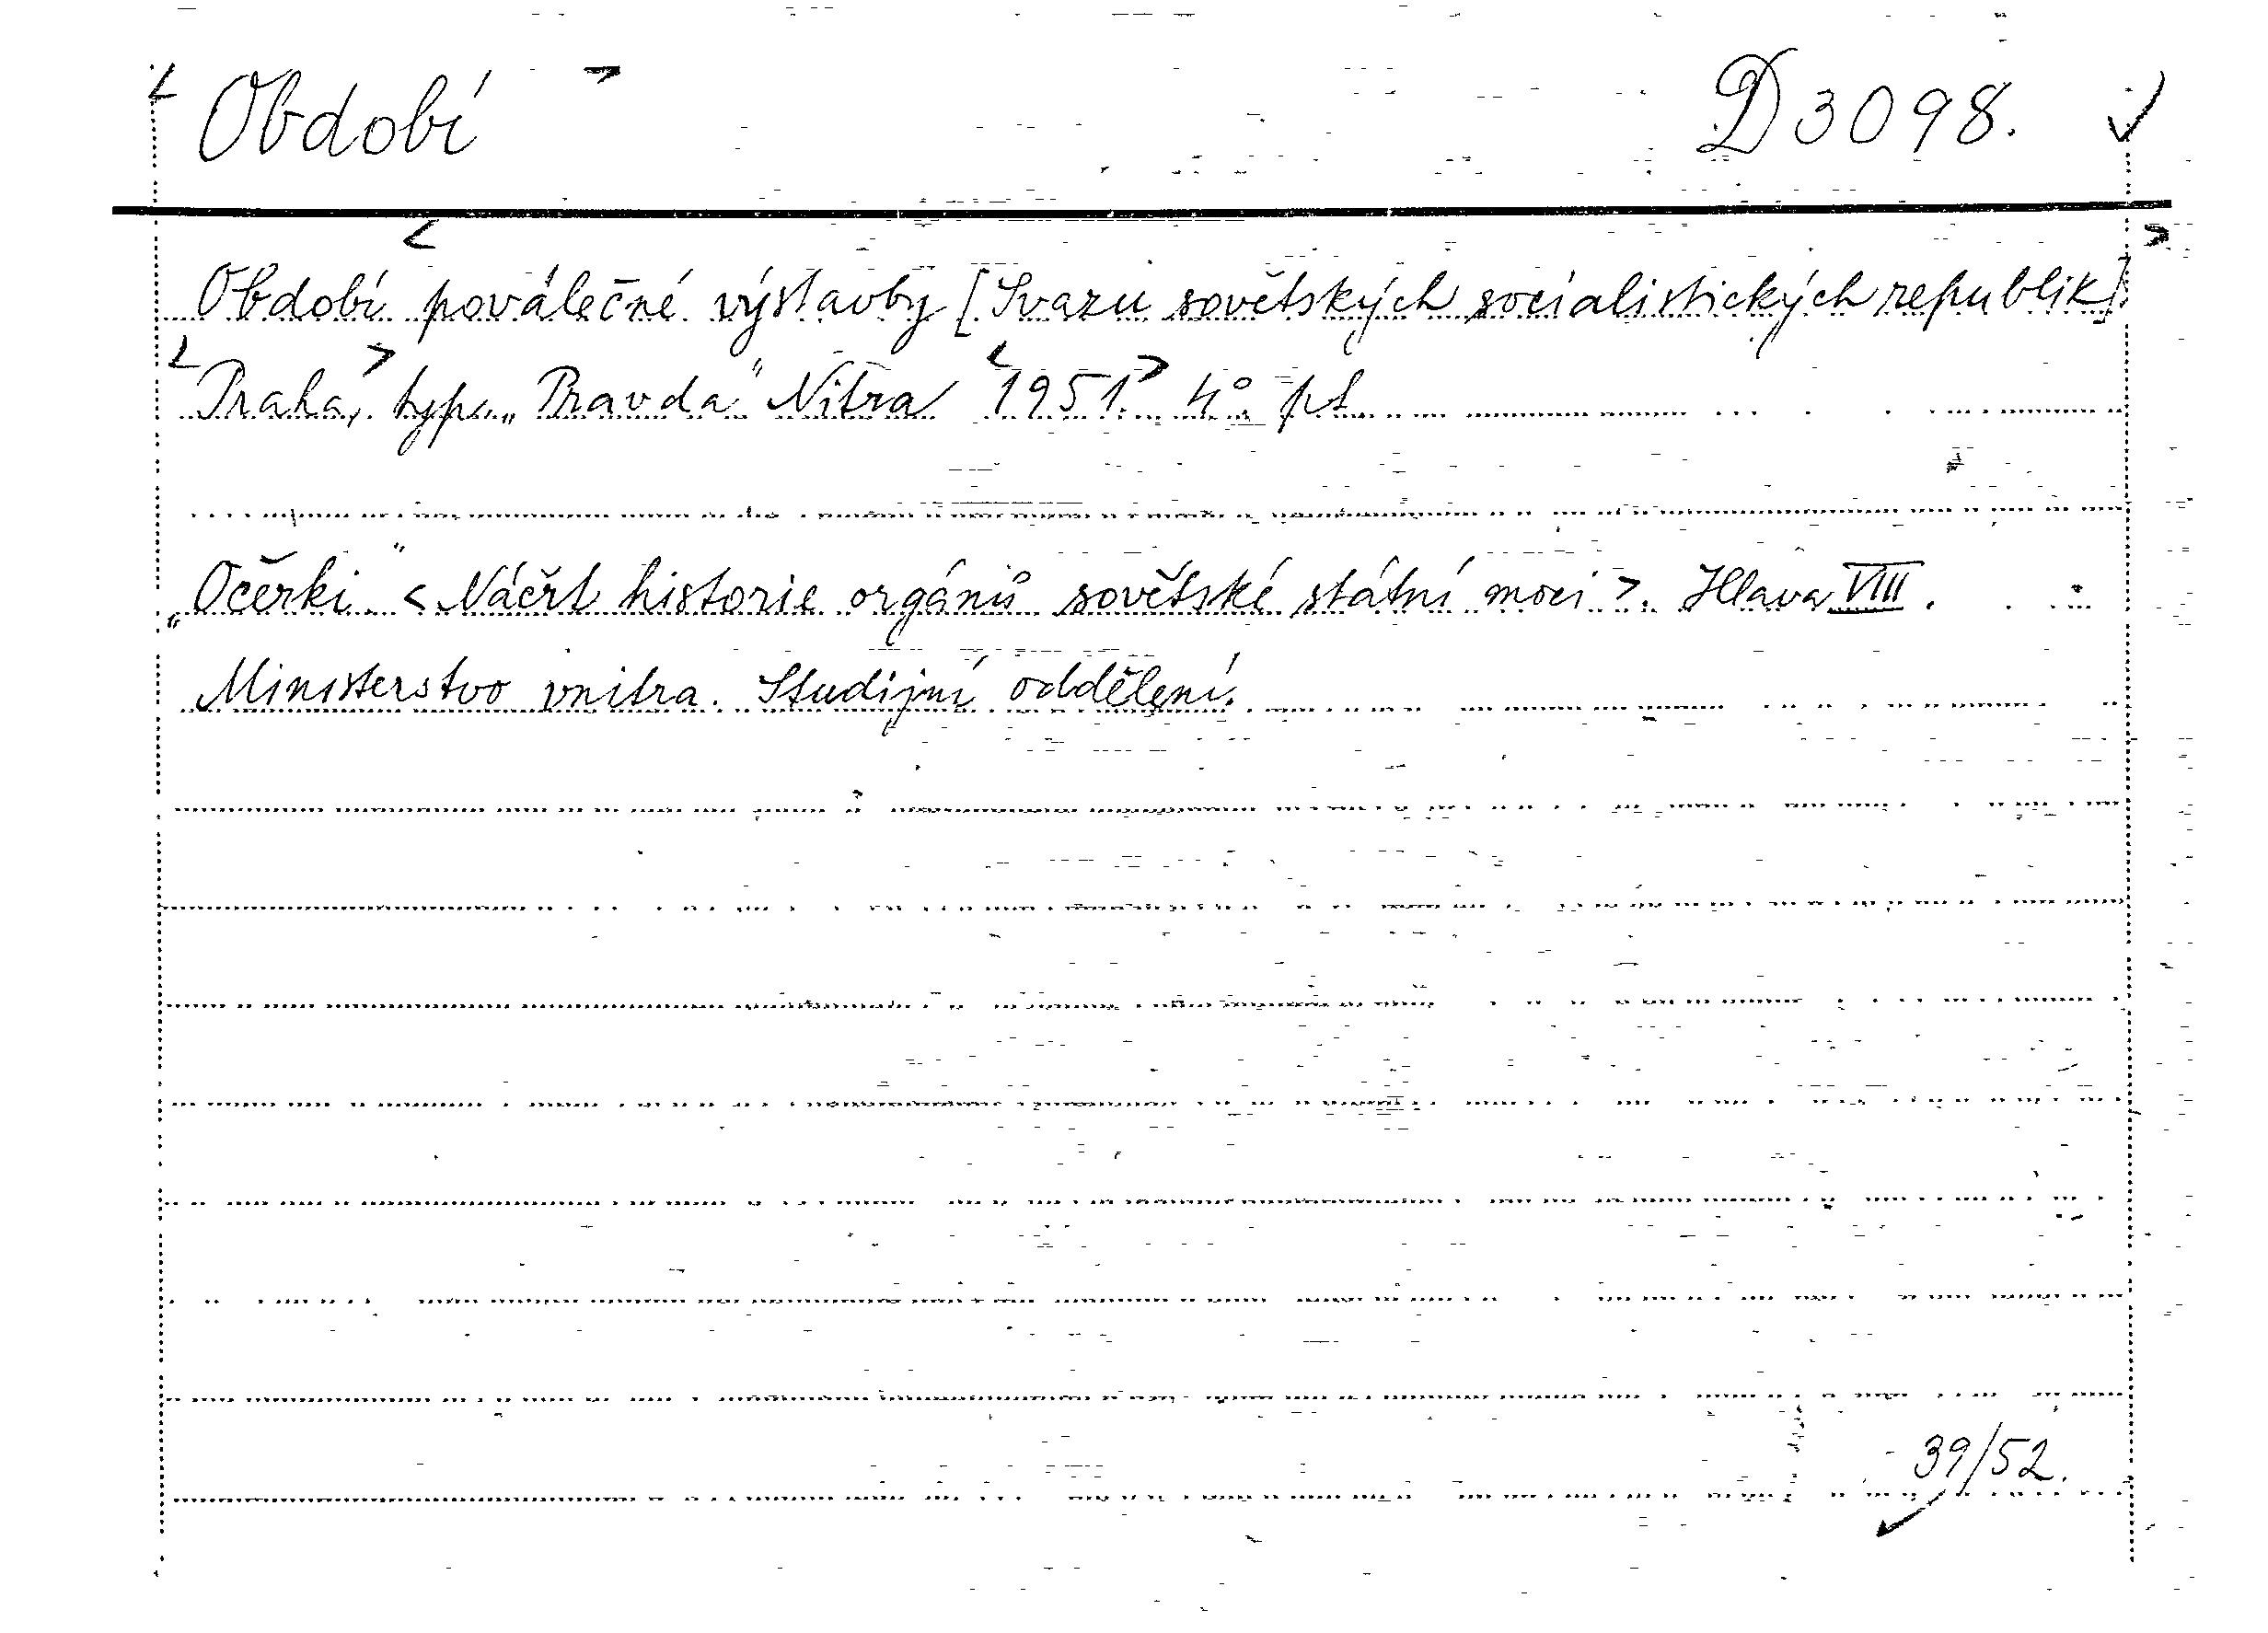 < Období > D 3098.
Období < poválečné výstavby [Svazu sovětských socialistických republik]. >
< Praha, > typ. „Pravda" Nitra < 1951. > 4°. pt.
„Očerki" < Náčrt historie orgánů sovětské státní moci >. Hlava VIII.
Ministerstvo vnitra. Studijní oddělení.
39/52.